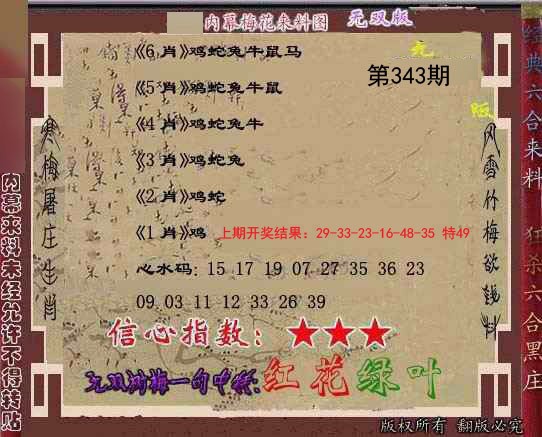 内幕梅花来料图 无双版
《6 肖》鸡蛇兔牛鼠马
无
第343期
《5 肖》鸡蛇兔牛鼠
版
《4 肖》鸡蛇兔牛
《3 肖》鸡蛇兔
《2 肖》鸡蛇
《1 肖》鸡 上期开奖结果：29-33-23-16-48-35 特49
心水码: 15 17 19 07 27 35 36 23
09 03 11 12 33 26 39
信心指数：★★★
无双浏梅一句中特:红花绿叶
版权所有 翻版必究
寒梅屠庄生肖
内幕来料未经允许不得转贴
风雪竹梅欲钱料
经典六合来料
狂杀六合黑庄